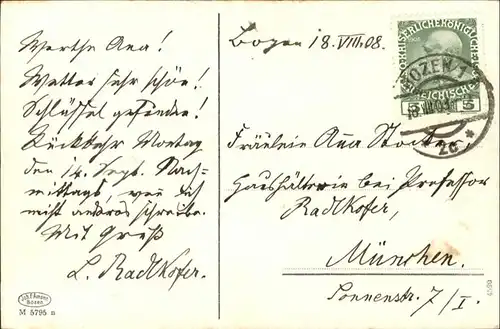 Werthe Ana!
Wetter sehr schön!
Schlüssel gefunden!
Rückkehr Montag
den 14. Sept. Nach-
mittags, wen ich
nicht andres schreibe.
Mit Gruß
L. Radlkofer.
Bozen 18.VIII.08.
KAISERLICHE KÖNIGLICHE
5 5
BOZEN 1
18.VIII.08
2c *
Fräulein Ana
Haushälterin bei Professor
Radlkofer,
München.
Sonnenstr. 7/I.
Bozen.
M 5795 n